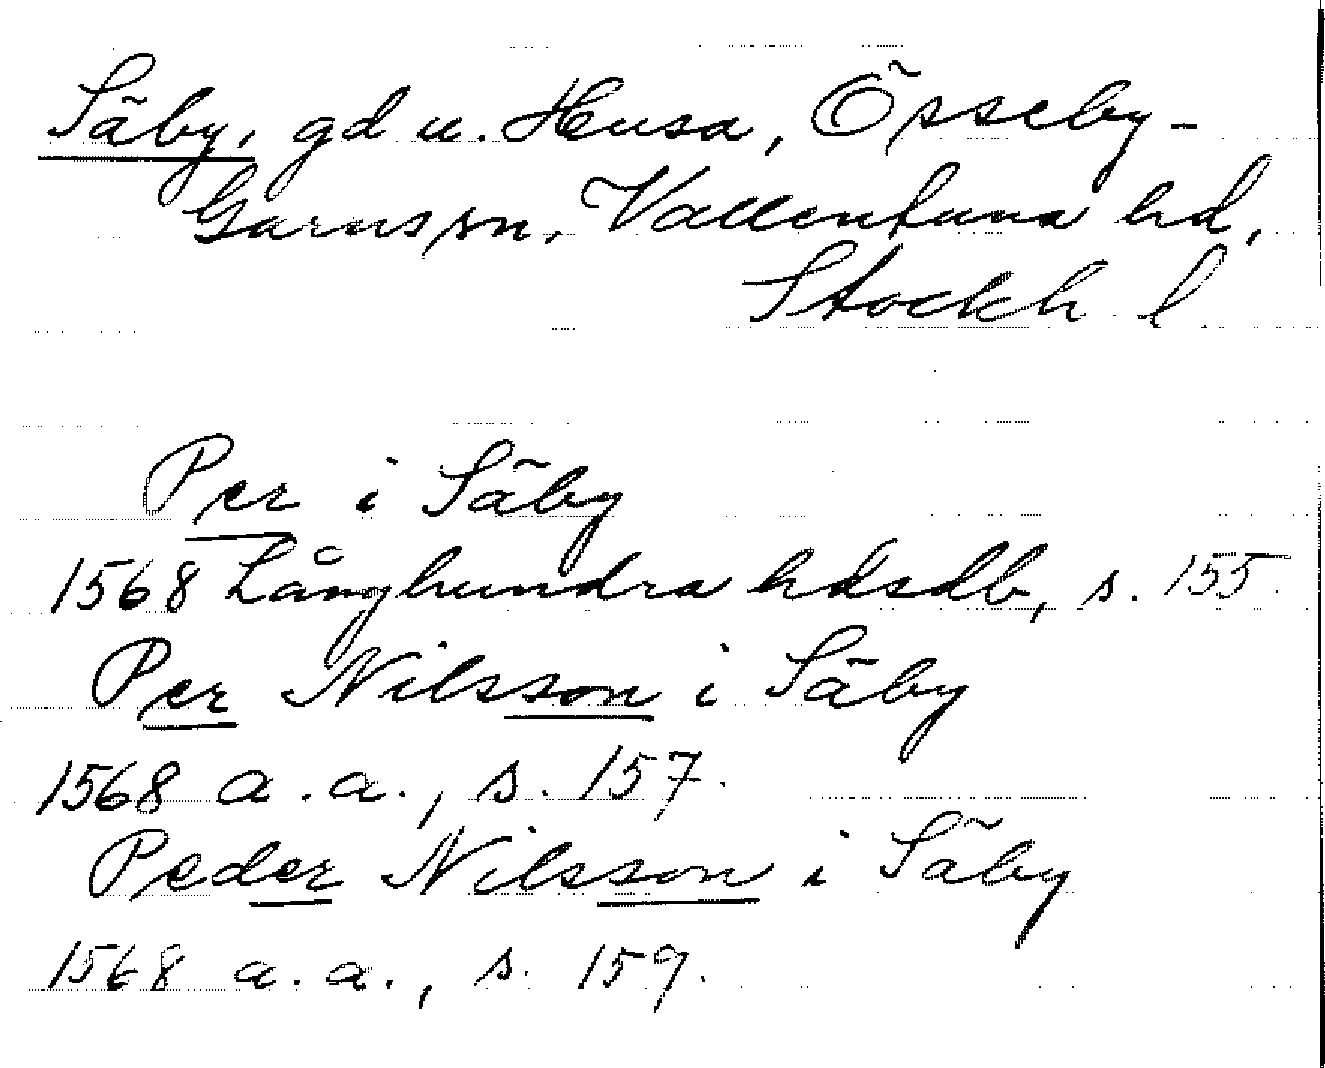 Säby, gd u. Husa, Össeby-
Garns sn, Vallentuna hd,
Stockh l
Per i Säby
1568 Långhundra hdsdb, s. 155.
Per Nilsson i Säby
1568 a.a., s. 157.
Peder Nilsson i Säby
1568 a.a., s. 159.